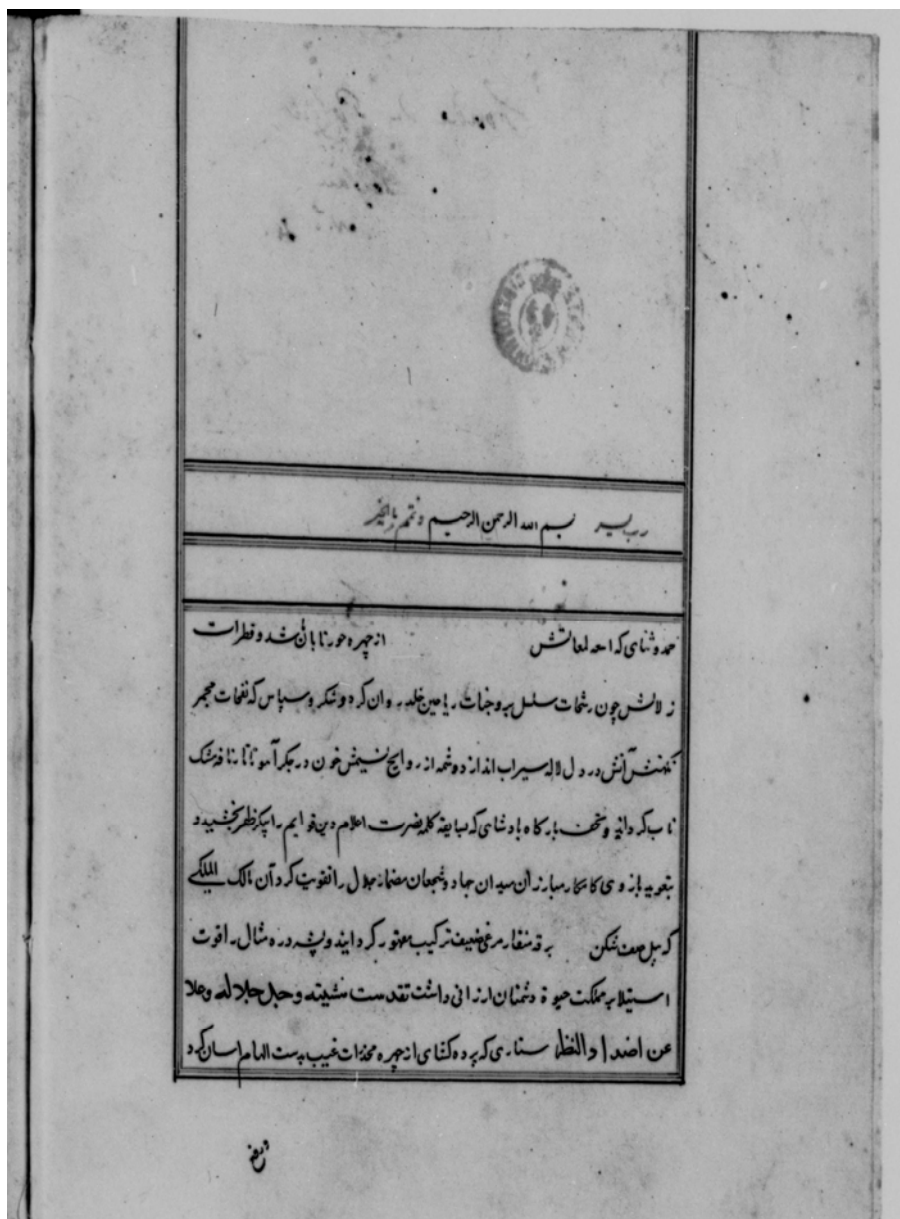 رب یسر بسم الله الرحمن الرحیم و تمم بالخیر
حمد و ثنای که لمعاتش از چهره حور تابان شد و قطرات
زلالش چون رشحات سلسل بر وجنات ریاحین خلد روان کرد و شکر و سپاس که نفحات مجمر
نکهتش آتش در دل لاله سیراب اندازد و از روایح نسیمش خون در جکر آهو تاتار نافه مشک
ناب کرداند و تحف بارکاه بادشاهی که سابقه کلمه نصرت اعلام دین قوایم را پیکر ظفر بخشید و
بتعویذ بازوی کامکار مبارزان میدان جاد و شجعان مضمار جلال را تقویت کرد آن مالک الملکی
که پیل صف شکن برق منقار مرغی ضعیف ترکیب مقهور کردانید و پشه ذره مثال را قوت
استیلا بر مملکت حیوة دشمنان ارزانی داشت تقدست مشیته و جل جلاله و علا
عن اضداد والنظا ستاری که پرده کشای از چهره مخدرات غیب بدست الهام اسان کرد